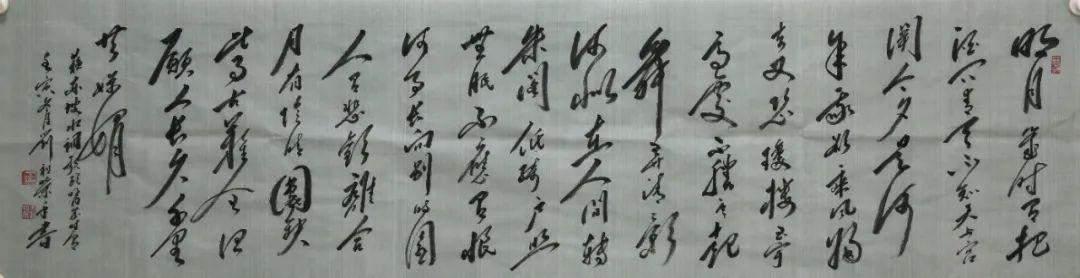 明月幾時有把
酒問青天不知天上宮
闕今夕是何
年我欲乘風歸
去又恐瓊樓玉宇
高處不勝寒起
舞弄清影
何似在人間轉
朱閣低綺戶照
無眠不應有恨
何事長向別時圓
人有悲歡離合
月有陰晴圓缺
此事古難全但
願人長久千里
共嬋娟
蘇東坡水調歌頭
壬寅春劉 書